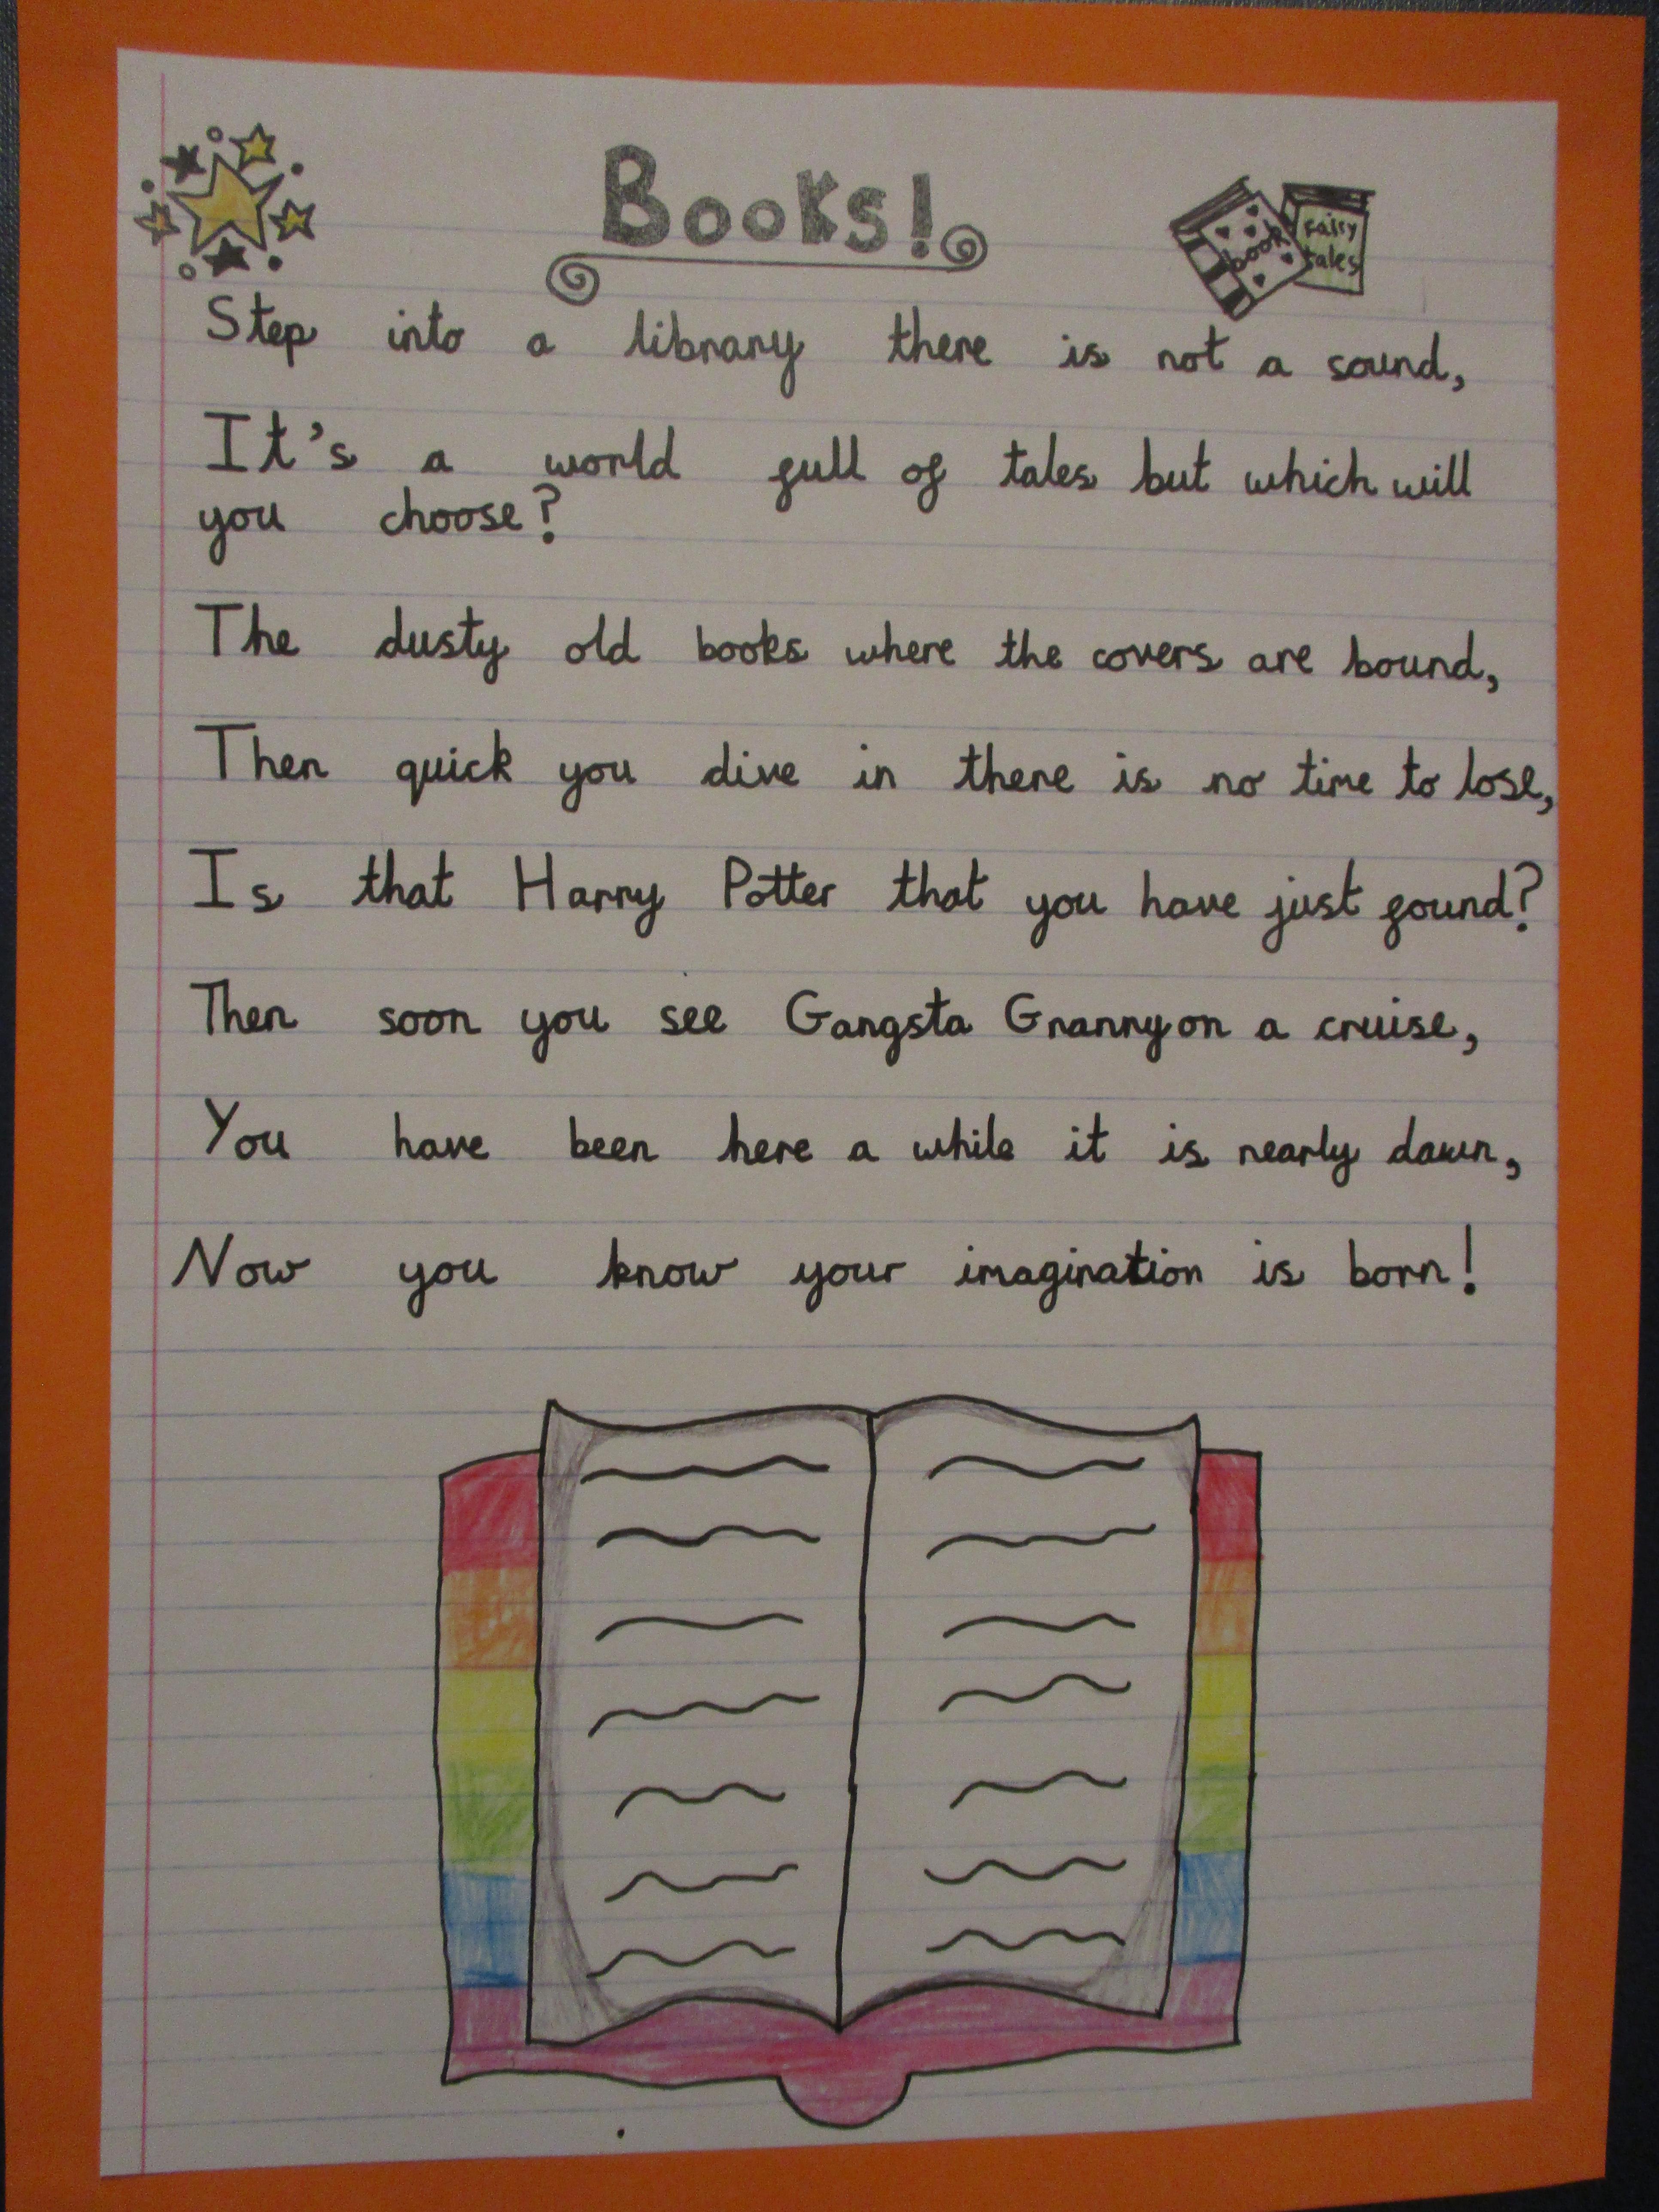 Books!
book
Fairy
tales
Step into a library there is not a sound,
It's a world full of tales but which will
you choose?
The dusty old books where the covers are bound,
Then quick you dive in there is no time to lose,
Is that Harry Potter that you have just found?
Then soon you see Gangsta Granny on a cruise,
You have been here a while it is nearly dawn,
Now you know your imagination is born!